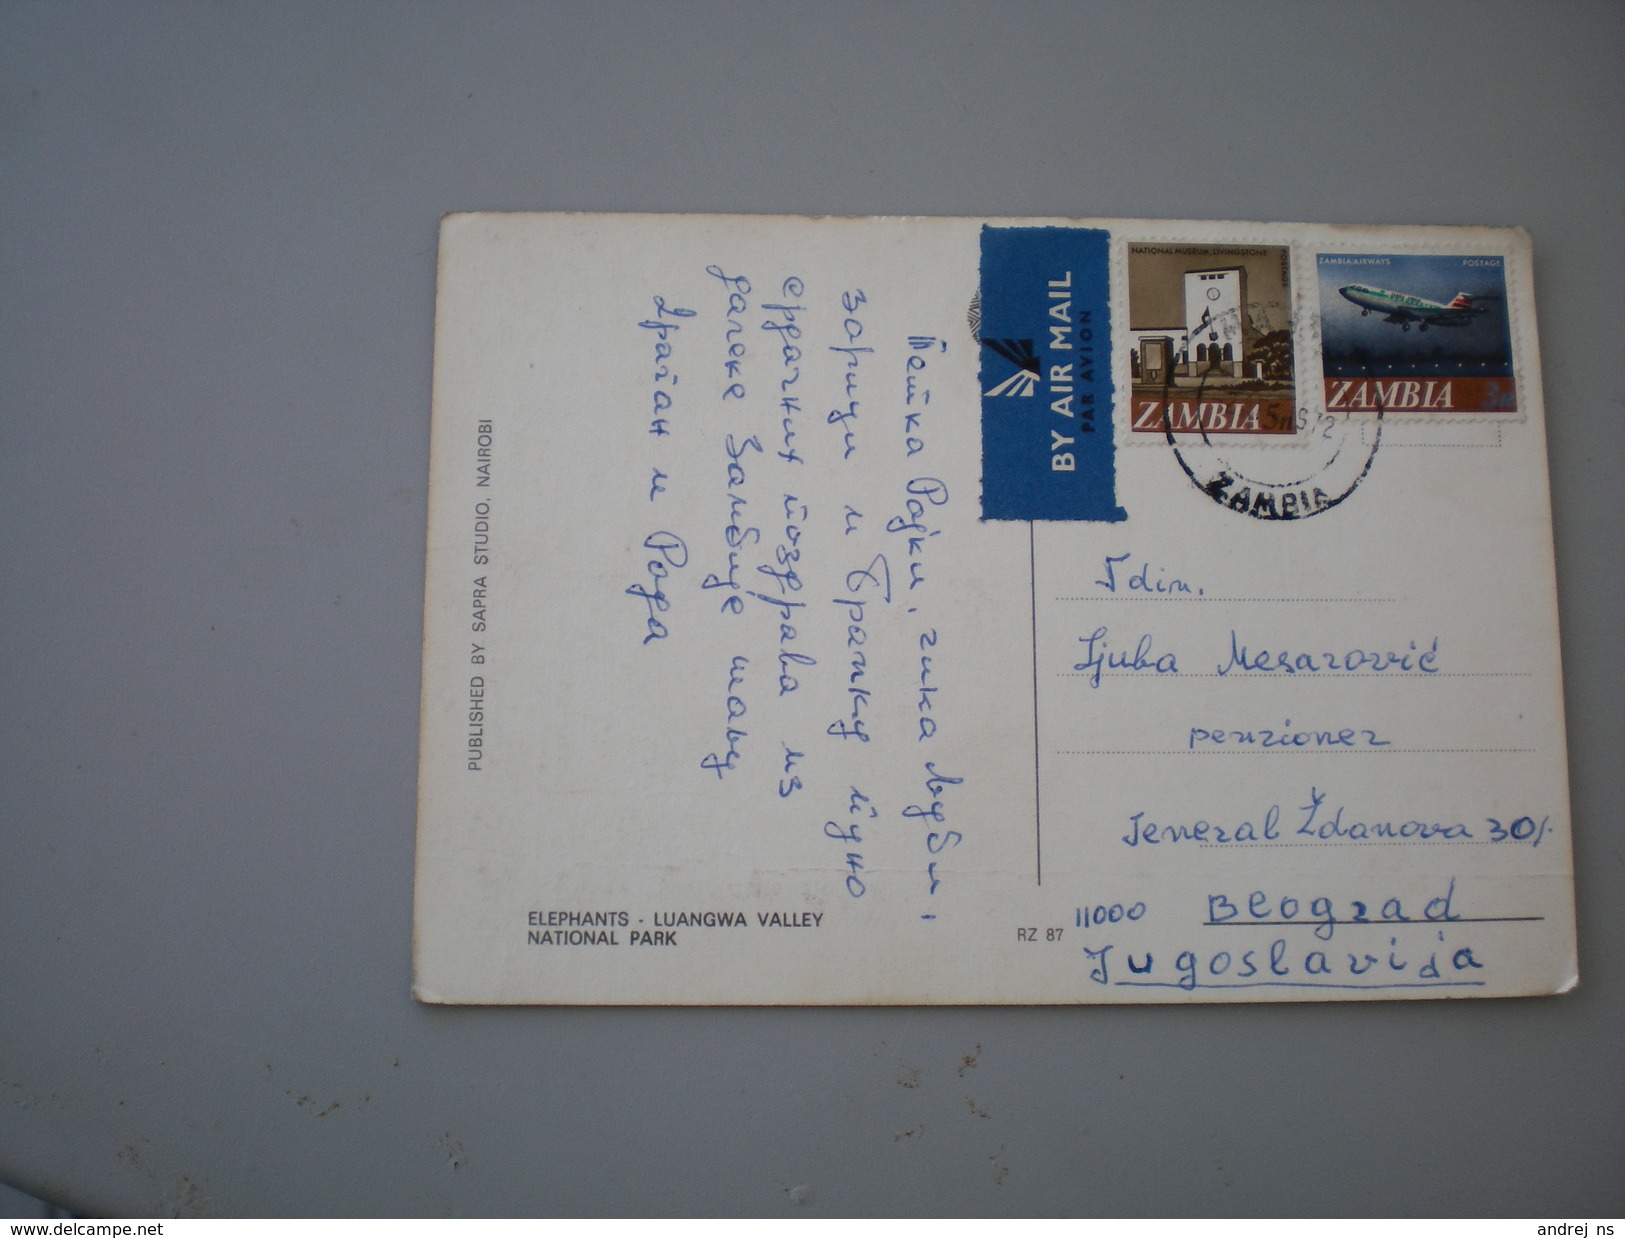 Тетка Рајки, чика Љуби,
Зорици и Бранку пуно
срдачних поздрава из
далеке Замбије шаљу
Драган и Рада
PUBLISHED BY SAPRA STUDIO, NAIROBI
ELEPHANTS - LUANGWA VALLEY
NATIONAL PARK
RZ 87
BY AIR MAIL
PAR AVION
NATIONAL MUSEUM, LIVINGSTONE
POSTAGE
ZAMBIA 5n
ZAMBIA AIRWAYS POSTAGE
ZAMBIA 3n
ZAMBIA
Fdin.
Ljuba Mesarović
penzioner
Jeneral Ždanova 30/.
11000 Beograd
Jugoslavija
delcampe.net
andrej_ns